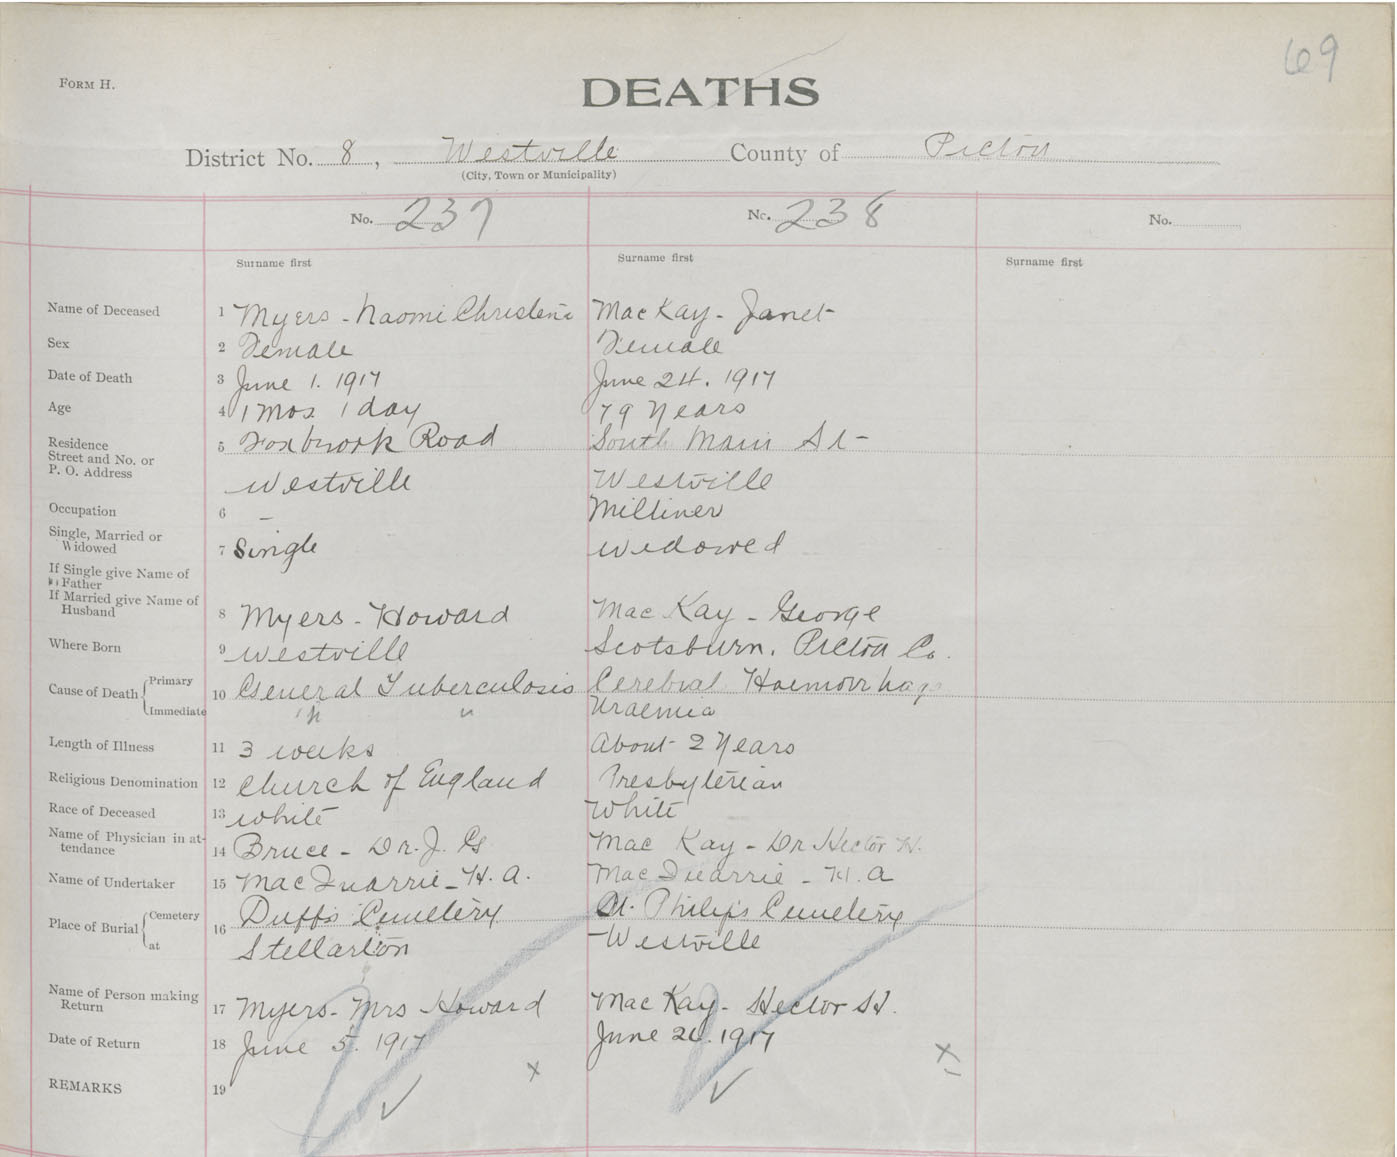 69
FORM H.
DEATHS
District No. 8, Westville County of Pictou
(City, Town or Municipality)
No. 237 No. 238 No.
Surname first Surname first Surname first
Name of Deceased 1 Myers - Naomi Christene MacKay - Janet
Sex 2 Female Female
Date of Death 3 June 1. 1917 June 24. 1917
Age 4 1 mos 1 day 79 Years
Residence Street and No. or P. O. Address 5 Foxbrook Road South Main St
Westville Westville
Occupation 6 - Milliner
Single, Married or Widowed 7 Single Widowed
If Single give Name of Father
If Married give Name of Husband 8 Myers - Howard Mac Kay - George
Where Born 9 Westville Scotsburn. Pictou Co.
Cause of Death Primary 10 General Tuberculosis Cerebral Haemorrhage
Immediate " " Uraemia
Length of Illness 11 3 weeks About 2 Years
Religious Denomination 12 Church of England Presbyterian
Race of Deceased 13 White White
Name of Physician in attendance 14 Bruce - Dr. J. Mac Kay - Dr Hector H.
Name of Undertaker 15 MacQuarrie - H. A. MacQuarrie - H. A
Place of Burial Cemetery 16 Duffs Cemetery St. Philips Cemetery
at Stellarton Westville
Name of Person making Return 17 Myers - Mrs Howard Mac Kay - Hector H.
Date of Return 18 June 5. 1917 June 26. 1917
REMARKS 19